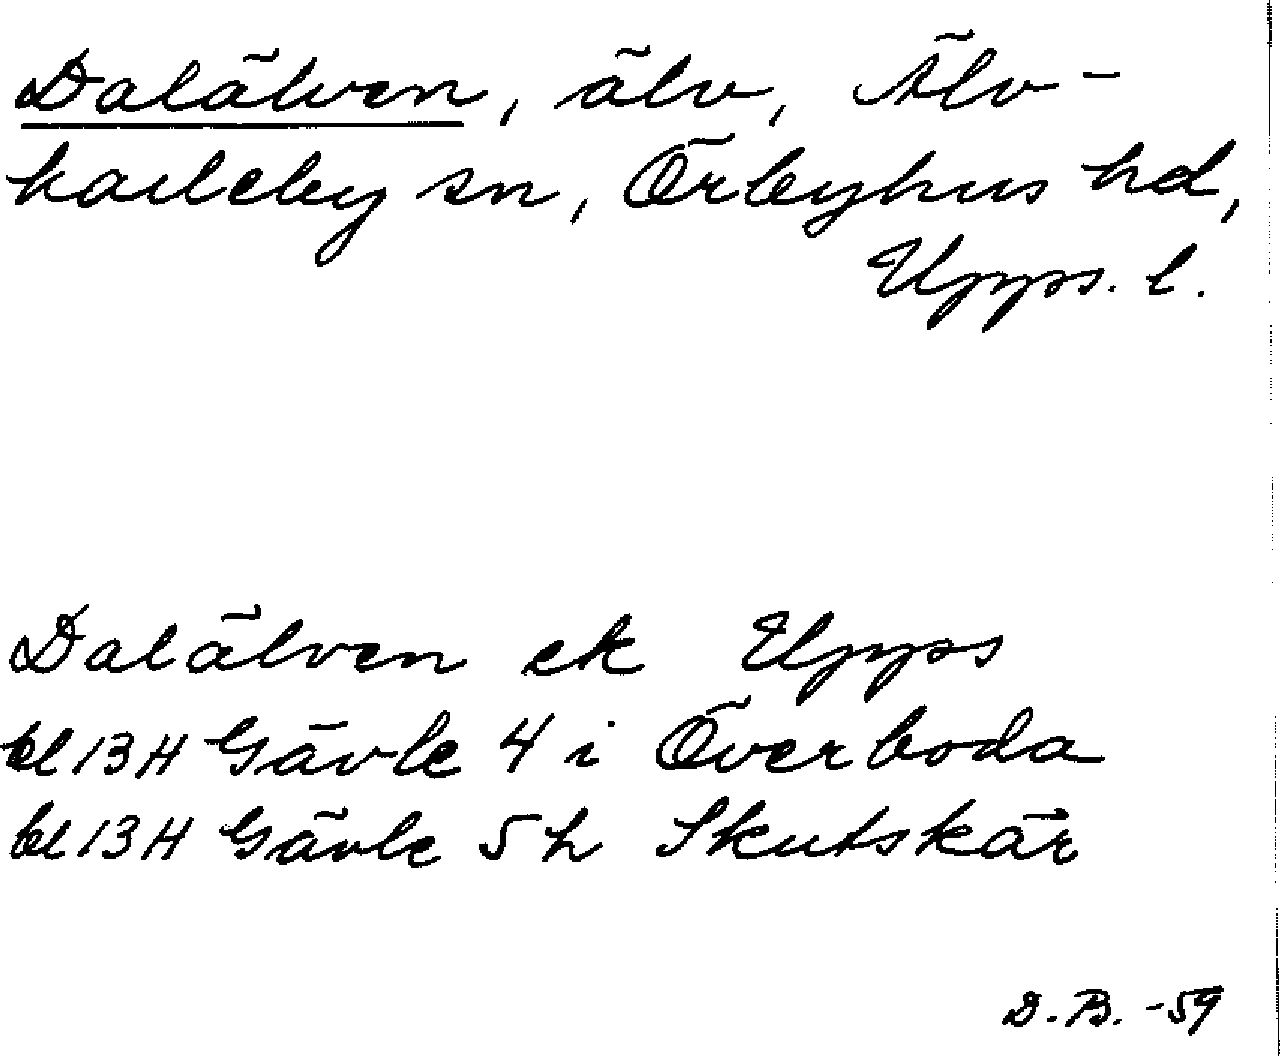 Dalälven, älv, Älv-
karleby sn, Örbyhus hd,
Upps. l.
Dalälven ek Upps
bl 13H Gävle 4 i Överboda
bl 13H Gävle 5 h Skutskär
D.B. -59